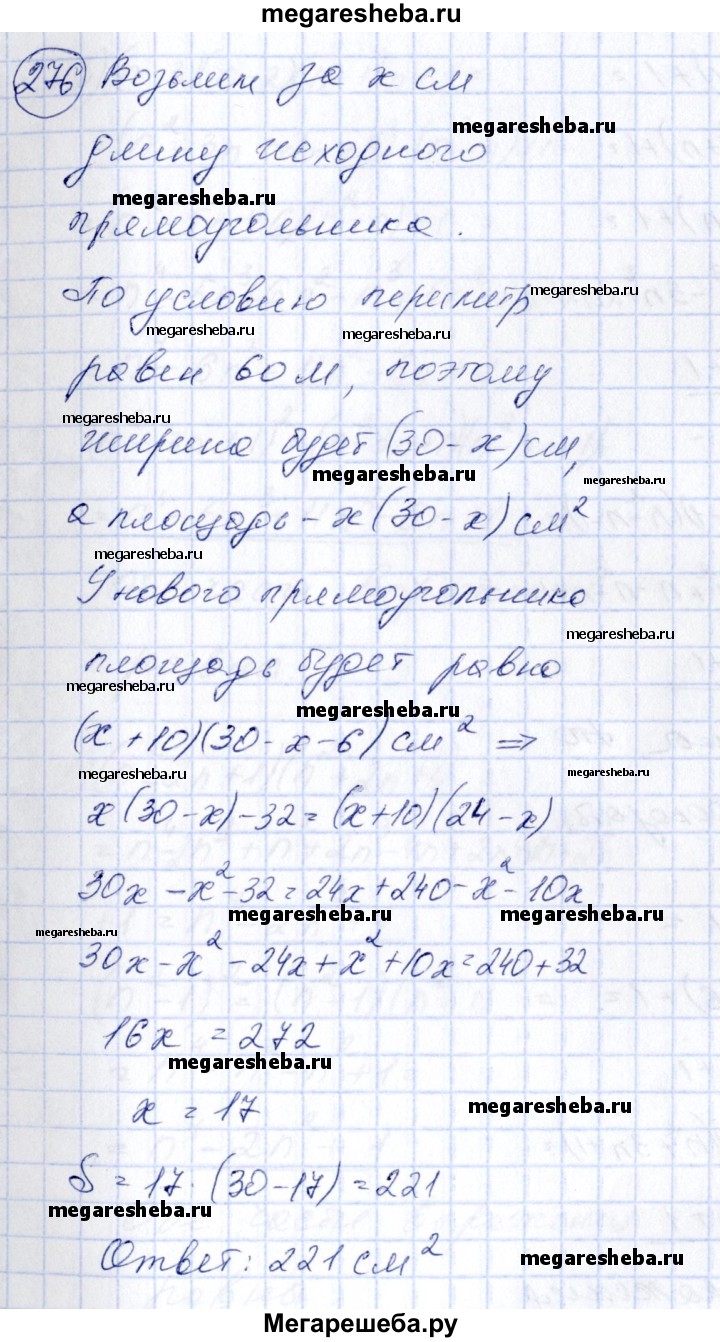 megaresheba.ru
276 Возьмем за x см
megaresheba.ru
длину исходного
megaresheba.ru
прямоугольника.
По условию периметр
megaresheba.ru
megaresheba.ru
megaresheba.ru
равен 60 м, поэтому
megaresheba.ru
ширина будет (30-x) см,
megaresheba.ru
megaresheba.ru
а площадь - x(30-x) см²
megaresheba.ru
У нового прямоугольника
megaresheba.ru
площадь будет равна
megaresheba.ru
megaresheba.ru
(x+10)(30-x-6) см² ⇒
megaresheba.ru
megaresheba.ru
x(30-x)-32=(x+10)(24-x)
30x-x²-32=24x+240-x²-10x
megaresheba.ru
megaresheba.ru
megaresheba.ru
30x-x²-24x+x²+10x=240+32
16x = 272
megaresheba.ru
x = 17
megaresheba.ru
S = 17·(30-17) = 221
megaresheba.ru
Ответ: 221 см²
megaresheba.ru
Мегарешеба.ру